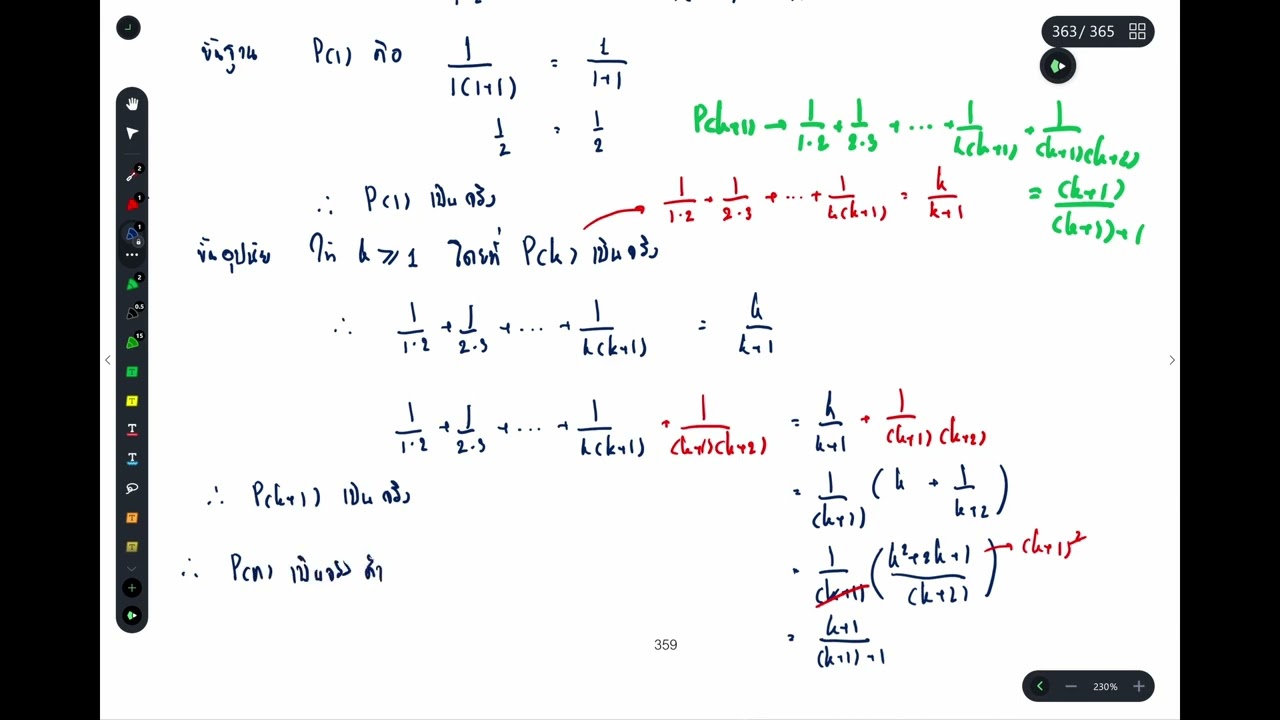 363/ 365
ขั้นฐาน P(1) คือ 1/1(1+1) = 1/1+1
1/2 = 1/2
P(k+1) → 1/1·2 + 1/2·3 + ... + 1/k(k+1) + 1/(k+1)(k+2)
= (k+1)/(k+1)+1
∴ P(1) เป็นจริง
1/1·2 + 1/2·3 + ... + 1/k(k+1) = k/k+1
ขั้นอุปนัย ให้ k ≥ 1 โดยที่ P(k) เป็นจริง
∴ 1/1·2 + 1/2·3 + ... + 1/k(k+1) = k/k+1
1/1·2 + 1/2·3 + ... + 1/k(k+1) + 1/(k+1)(k+2) = k/k+1 + 1/(k+1)(k+2)
= 1/(k+1) (k + 1/k+2)
∴ P(k+1) เป็นจริง
= 1/(k+1) (k²+2k+1/(k+2)) → (k+1)²
∴ P(n) เป็นจริง
= k+1/(k+1)+1
359
230%